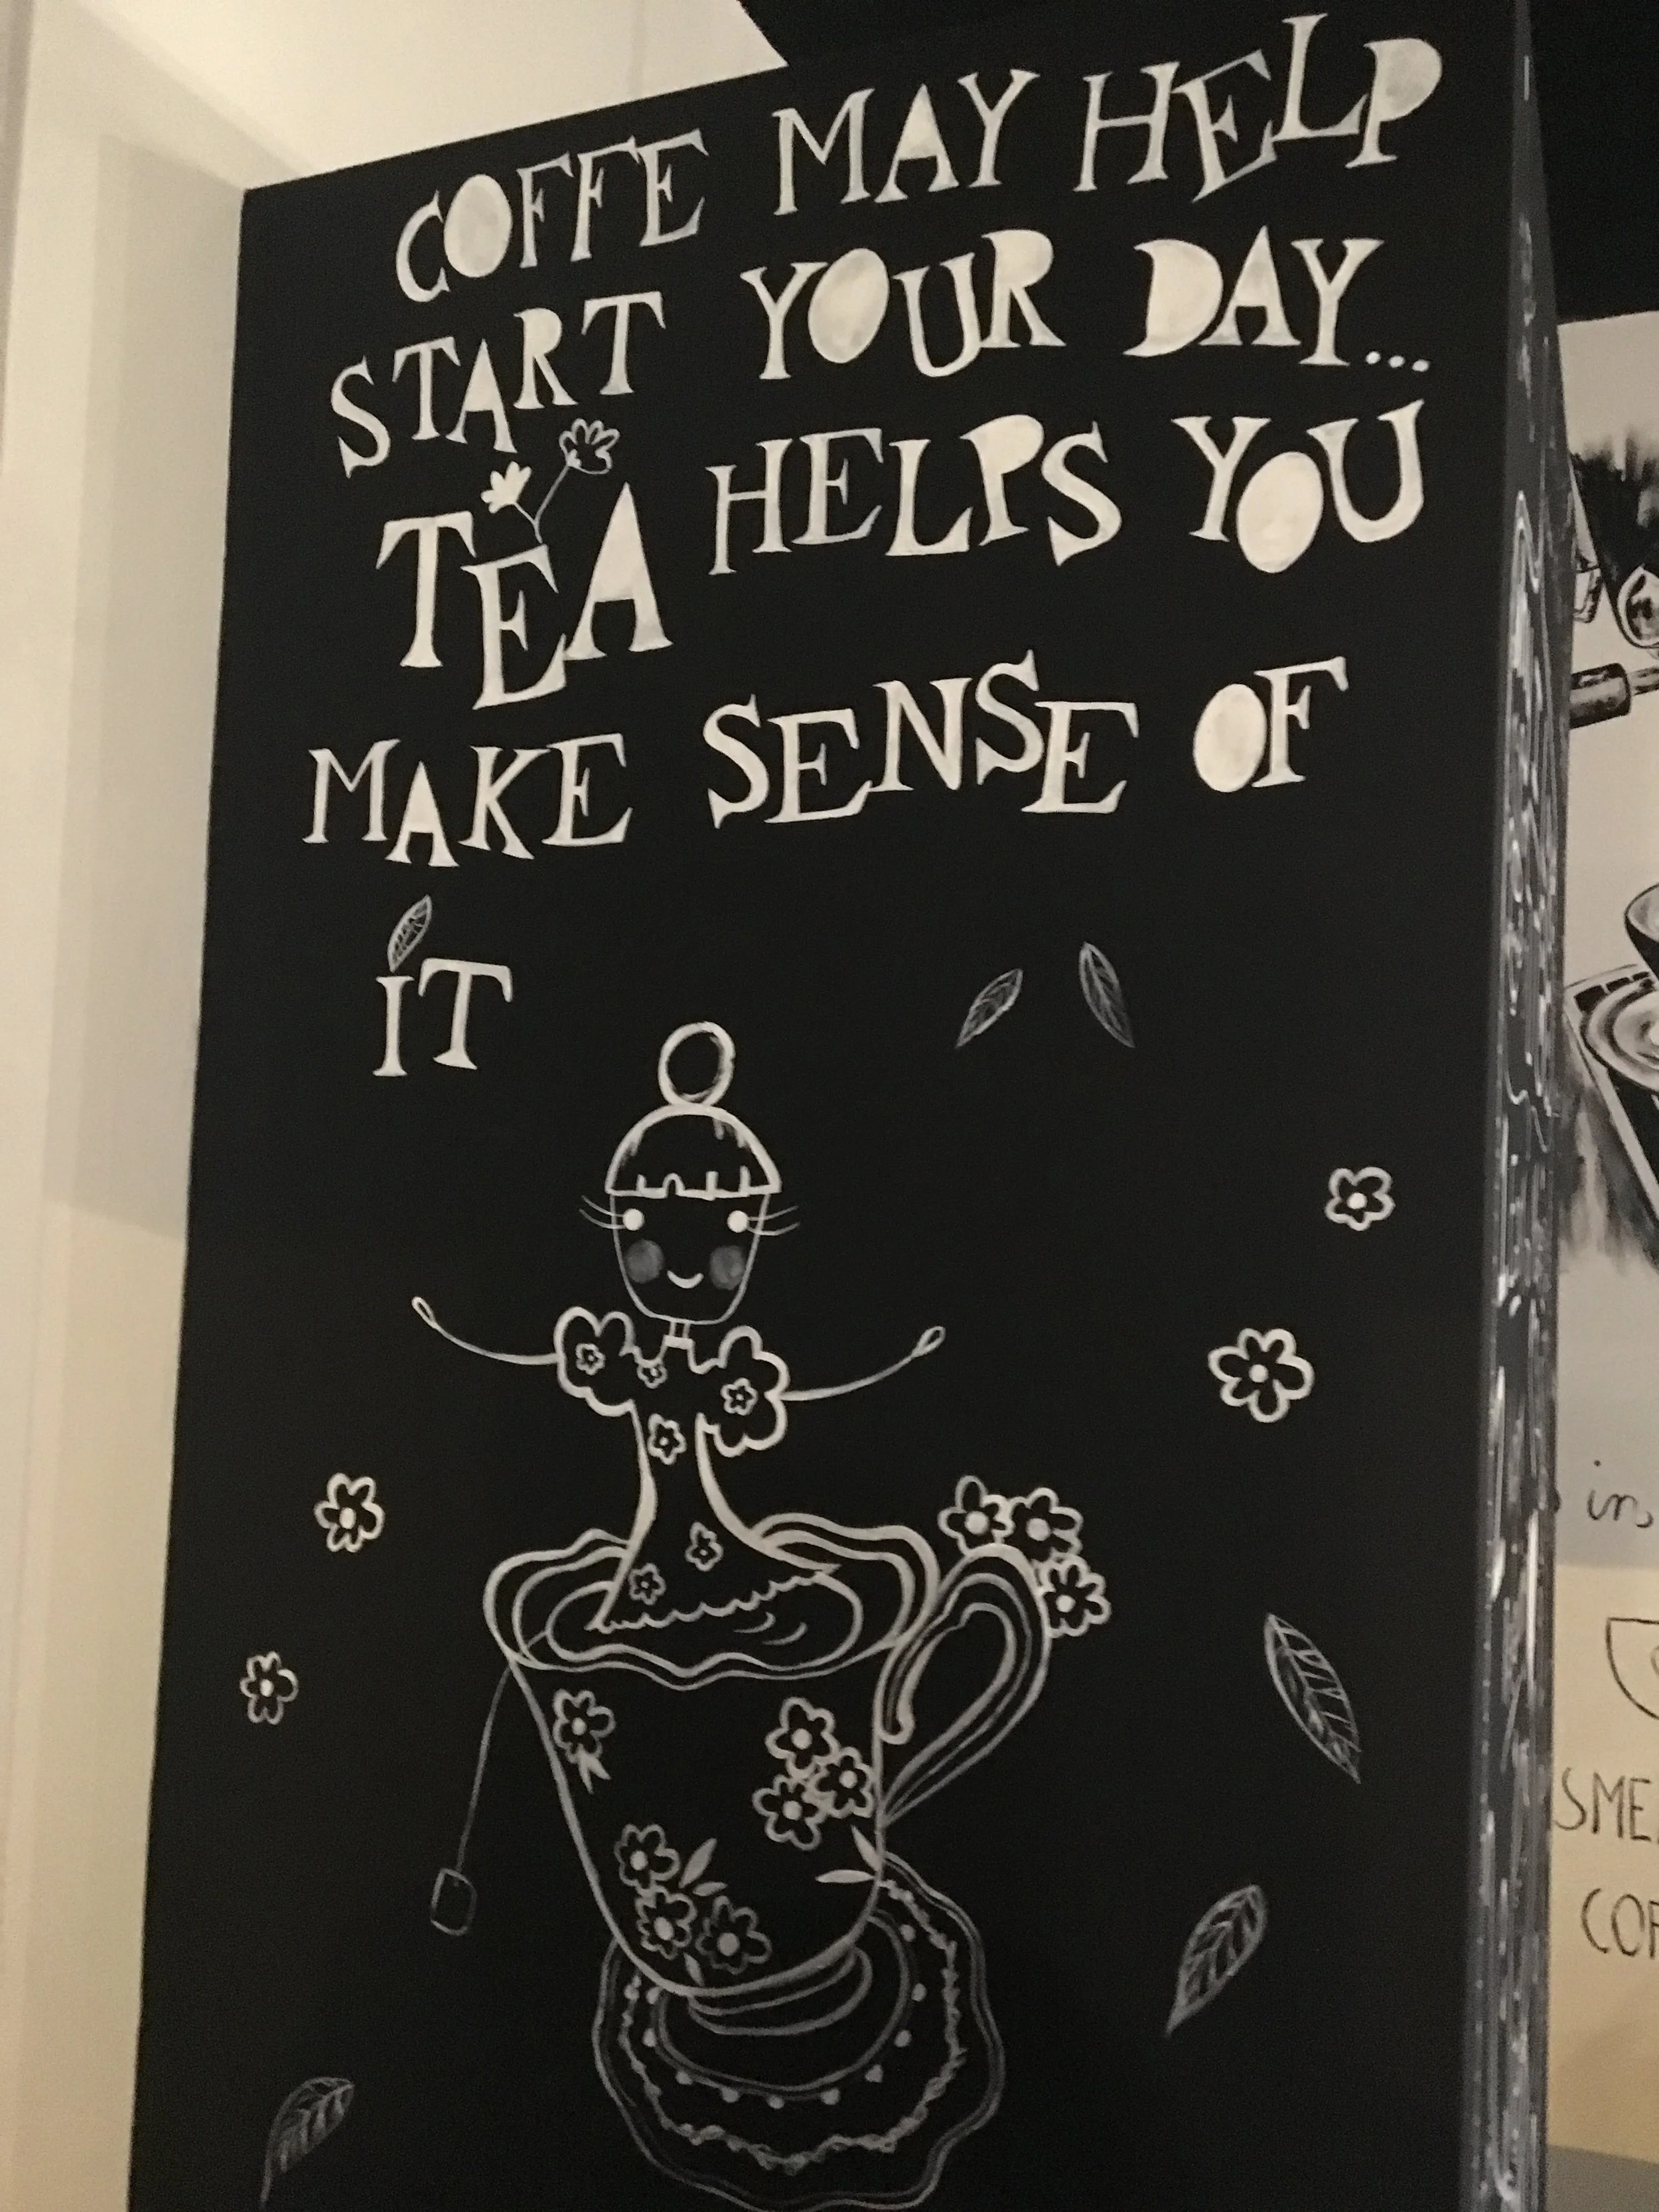 COFFE MAY HELP
START YOUR DAY...
TEA HELPS YOU
MAKE SENSE OF
IT
in